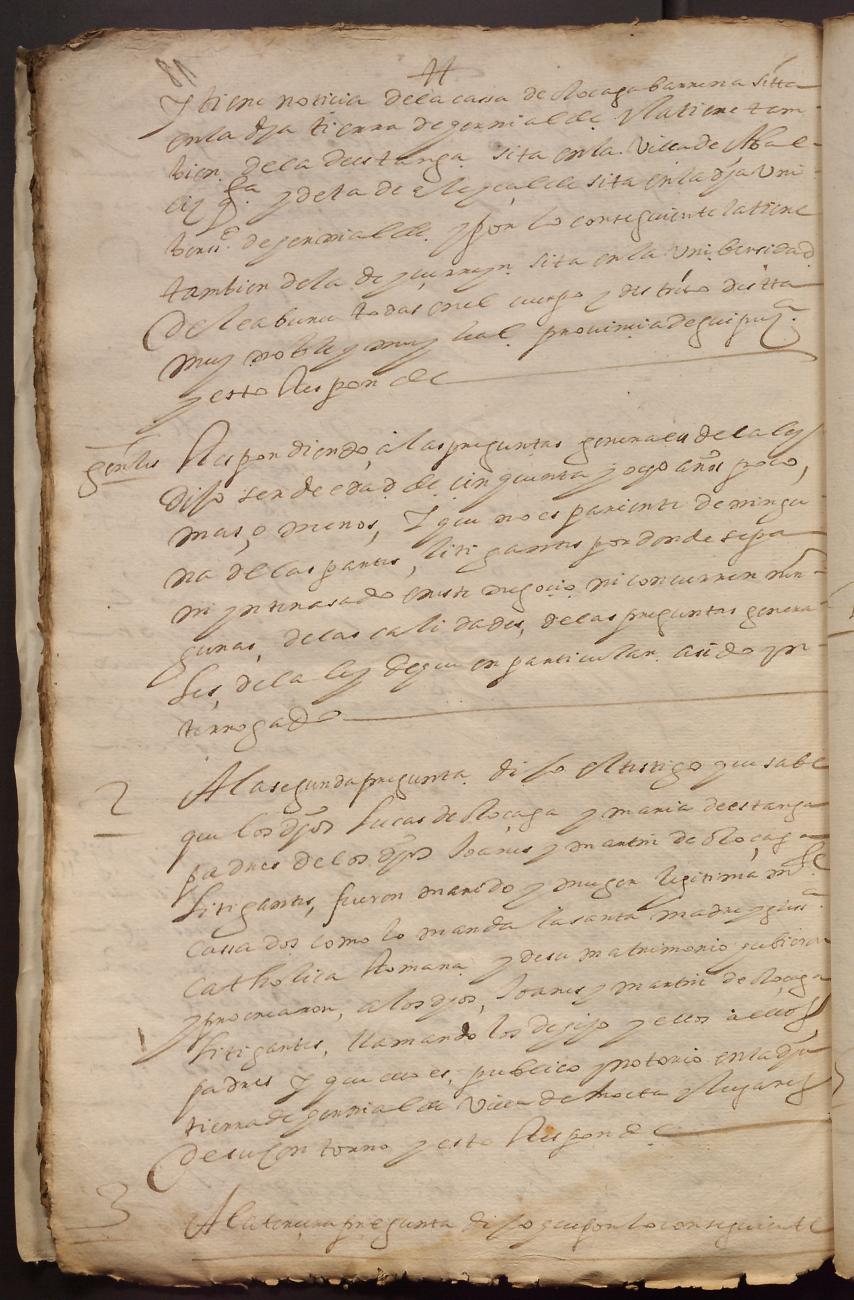 Y tiene noticia de la cassa de Oloçaga barrena sitta
en la dha tierra de gorrialde Y la tiene tam
bien de la de estanga sita en la Villa de Albal
cizq.ta y de la de Eleyçalde sita en la dha Uni
bersi.d de gorrialde y por lo conseguiente la tiene
tambien de la de yurre sita en la Unibersidad
de leaburu todas en el cuerpo y distrito desta
muy noble y muy leal provinçia de guipuz.a
y esto Responde
gen.les Respondiendo a las preguntas generales de la ley
dijo ser de edad de cinquenta y ocho años poco,
mas, o menos, Y que no es pariente de ningu
na de las partes, litigantes por donde sepa
ni ynteresado en este negocio ni concurren nin
gunas, de las calidades, de las preguntas genera
les, de la ley de que en particular a sido yn
terrogado
2 A la segunda pregunta dijo el testigo que sabe
que los dhos Lucas de Oloçaga y maria de estanga
padres de los dhos Joanes y martin de Oloçaga
litigantes, fueron marido y muger legitimam.te
cassados como lo manda la santa madre yglesi.a
Catholica Romana y de su matrimonio hubieron
y procrearon, a los dhos, Joanes y martin de Oloçaga
litigantes, llamandolos de hijo y ellos a ellos
padres Y que ello es, publico y notorio en la dha
tierra de gorrialde villa de y lugares
de su Contorno y esto Responde
3 A la tercera pregunta dijo que por lo conseguiente